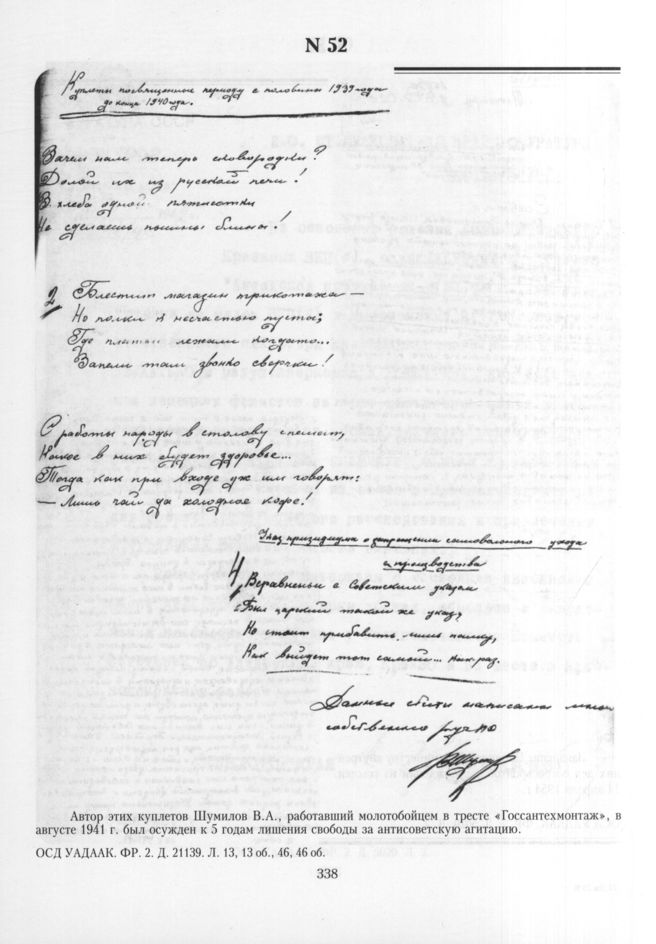 N 52
Куплеты посвященные периоду с половины 1939 года
до конца 1940 года.
Зачем нам теперь сковородки?
Долой их из русской печи!
З хлеба одной пятисотки
Не сделаешь пышны блины!
2 Блестит магазин трикотажа —
Но полки к несчастью пусты;
Где платья лежали когдато...
Запели там звонко сверчки!
С работы народы в столову спешат,
Какое в них будет здоровье...
Тогда как при входе уж им говорят:
— Лишь чай да холодное кофе!
Указ призидиума о запрещении самовольного ухода
с производства
4, Всравненье с Советским указом
Был царский такой же указ,
Но стоит прибавить лишь палку,
Как выйдет тот самый... как раз.
Данные стихи написаны мною
собственно ручно
Автор этих куплетов Шумилов В.А., работавший молотобойцем в тресте «Госсантехмонтаж», в
августе 1941 г. был осужден к 5 годам лишения свободы за антисоветскую агитацию.
ОСД УАДААК. ФР. 2. Д. 21139. Л. 13, 13 об., 46, 46 об.
338